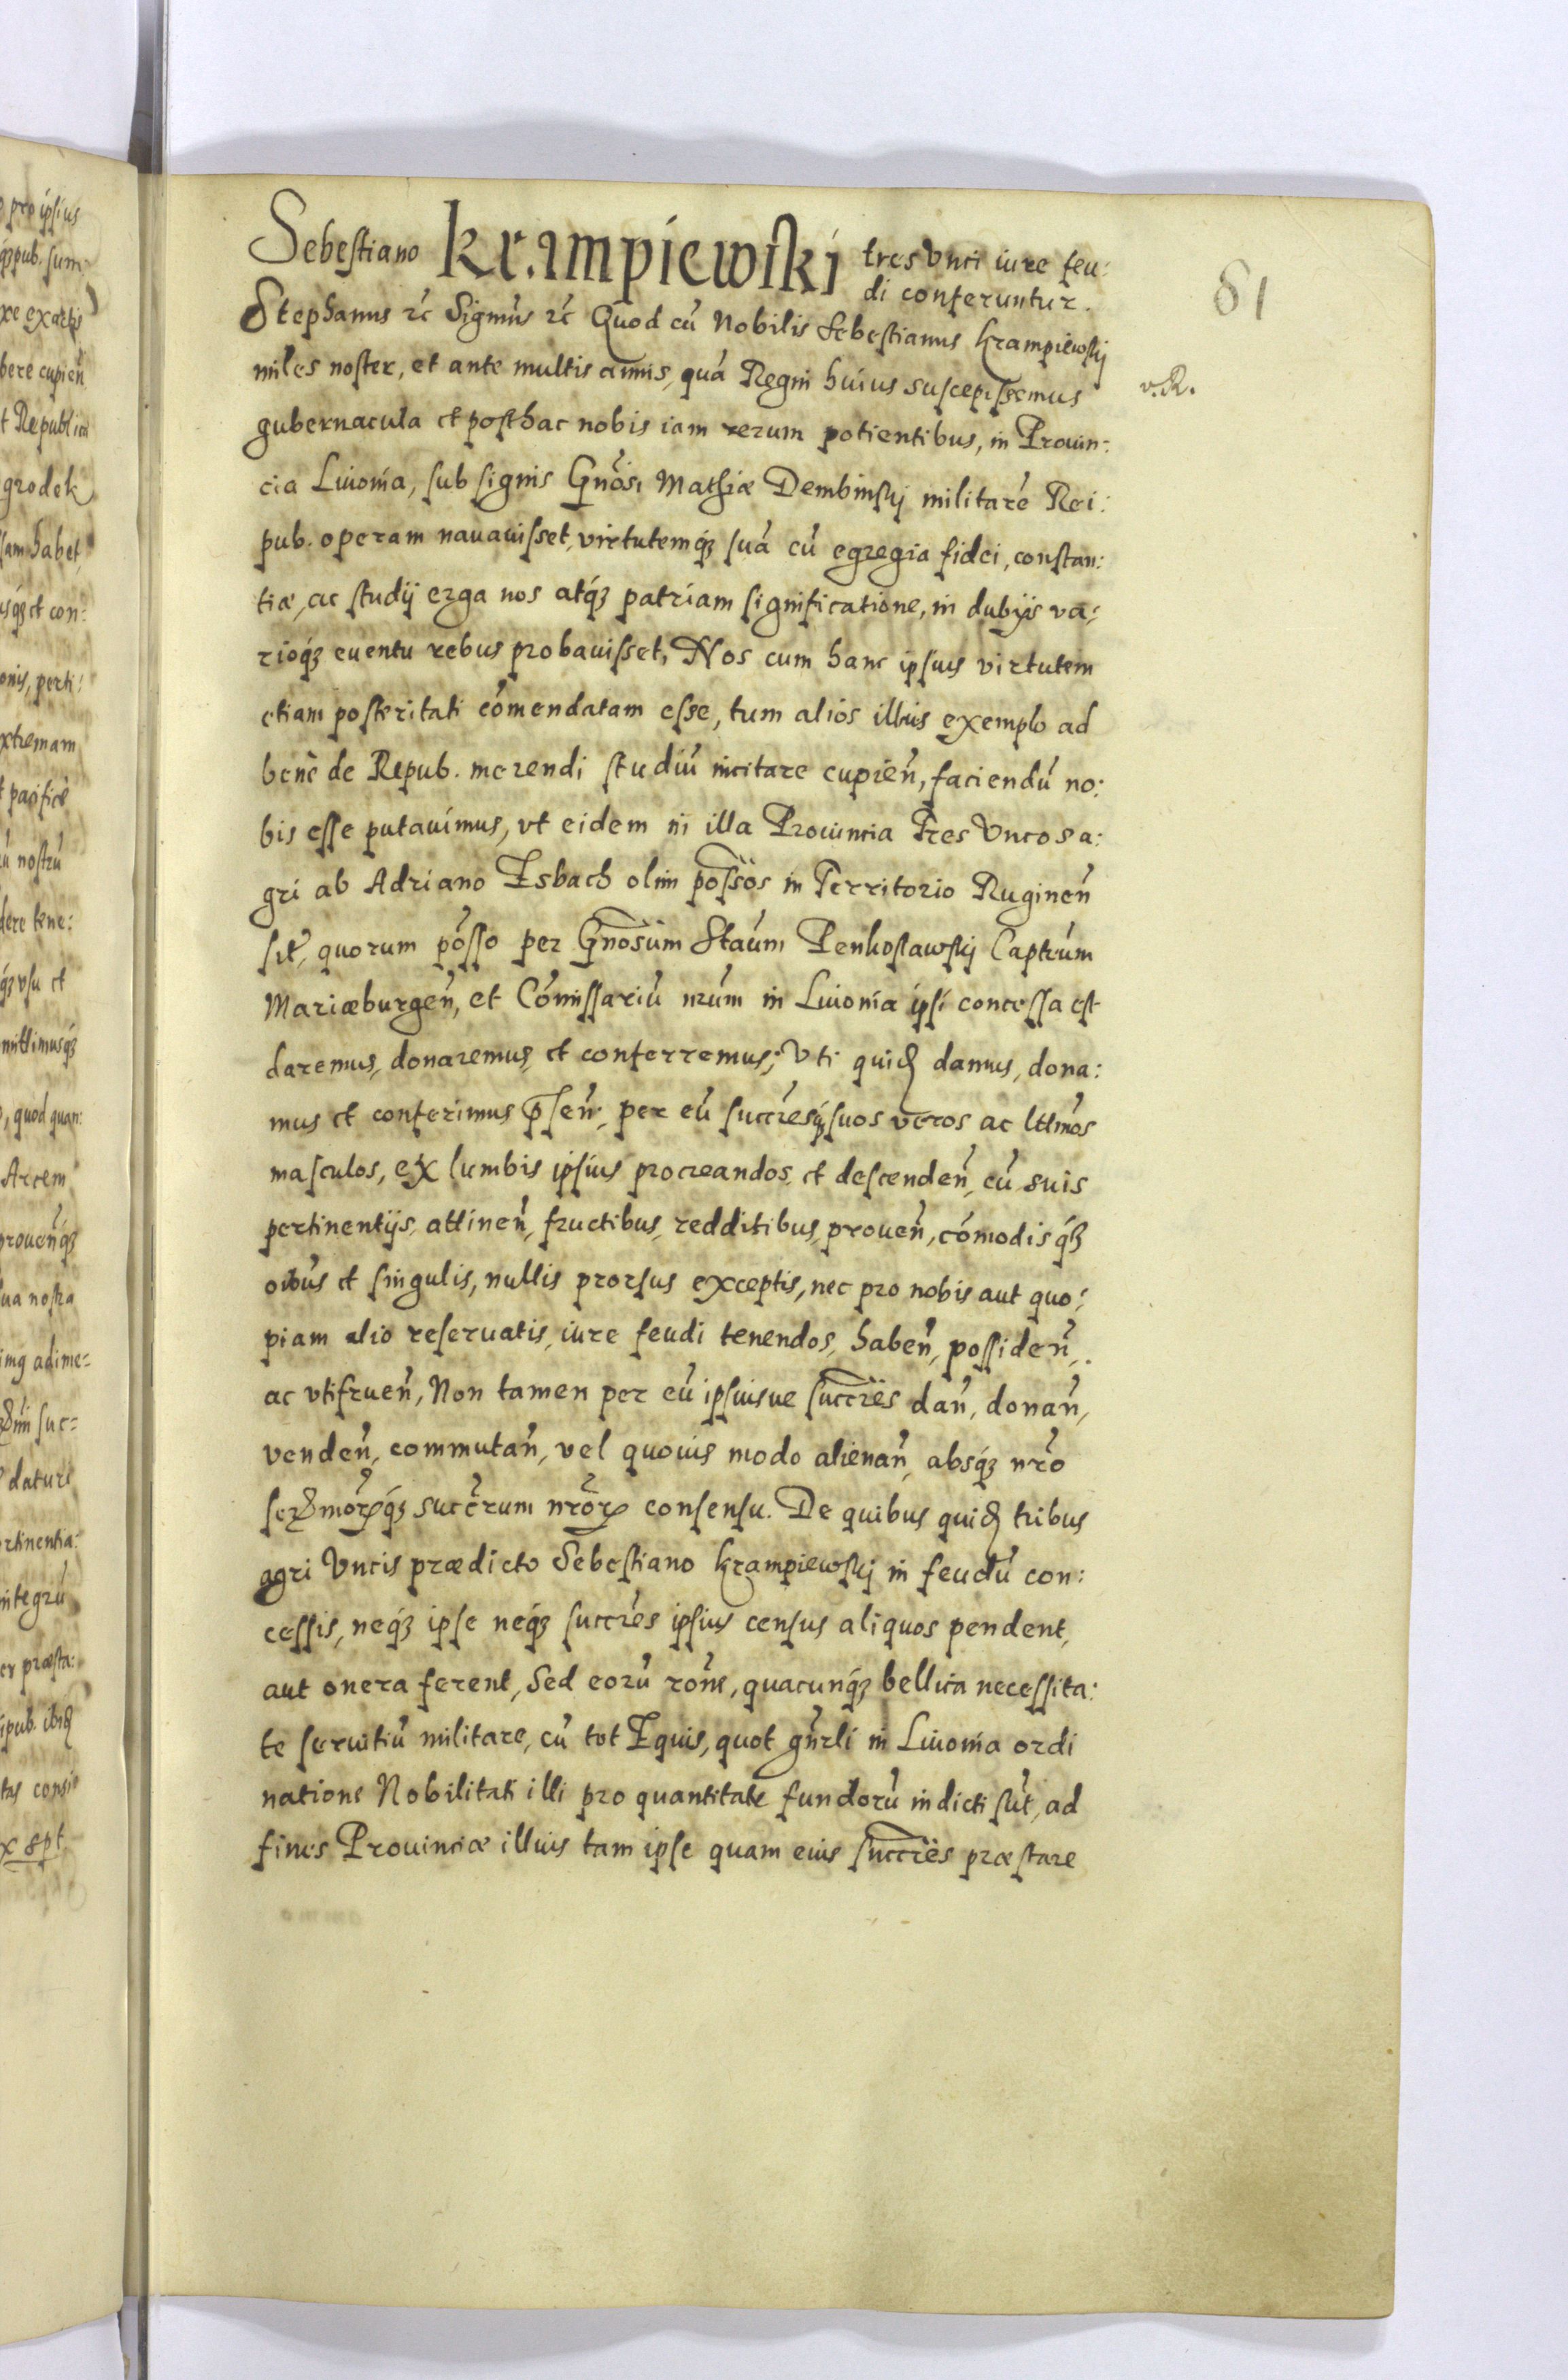 Sebestiano Krampiewski tres Vnci iure feu:
di conferuntur.
81
Stephanus rć Signũs rć Quod cũ Nobilis Sebestianus Krampiewskj
miles noster, et ante multis annis, quã Regni huius suscepissemus
v. R.
gubernacula et posthac nobis iam rerum potientibus, in Prouin:
cia Liuonia, sub signis Gnõsi Mathiæ Dembinskj militarẽ Rei:
pub. operam nauauisset, virtutemq́ꝫ suã cũ egregia fidei, constan:
tiæ, ac studij erga nos atq́ꝫ patriam significatione, in dubijs va:
rioq́ꝫ euentu rebus probauisset, Nos cum hanc ipsius virtutem
etiam posteritati cõmendatam esse, tum alios illius exemplo ad
benè de Repub. merendi studiũ incitare cupieñ, faciendũ no:
bis esse putauimus, vt eidem in illa Prouincia Tres Vncos a:
gri ab Adriano Esbach olim põssos in Territorio Rugineñ
sit̃, quorum põsso per Gnõsum Staũm Penkoslawskj Captũm
Mariæburgeñ, et Cõmissariũ nr̃um in Liuonia ipsi concessa est
daremus, donaremus, et conferremus; Vti quidꝫ damus, dona:
mus et conferimus p̃señ, per eũ succr̃esq́ꝫ suos veros ac ltt̃mos
masculos, ex lumbis ipsius procreandos et descendeñ, cũ suis
pertinentijs, attineñ, fructibus, redditibus, proueñ, cõmodisq́ꝫ
oĩbus et singulis, nullis prorsus exceptis, nec pro nobis aut quo:
piam alio reseruatis, iure feudi tenendos, habeñ, possideñ,
ac vtifrueñ, Non tamen per eũ ipsiusue succr̃es dañ, donañ,
vendeñ, commutañ, vel quouis modo alienañ, absq́ꝫ nr̃o
ser̃morꝝq́ꝫ succr̃um nr̃orꝝ consensu. De quibus quidꝫ tribus
agri Vncis prædicto Sebestiano Krampiewskj in feudũ con:
cessis, neq́ꝫ ipse neq́ꝫ succr̃es ipsius census aliquos pendent,
aut onera ferent, Sed eorũ rõne, quacunq́ꝫ bellica necessita:
te seruitiũ militare, cũ tot Equis, quot gñrli in Liuonia ordi
natione Nobilitati illi pro quantitate fundorũ indicti sũt, ad
fines Prouinciæ illius tam ipse quam eius succr̃es præstare